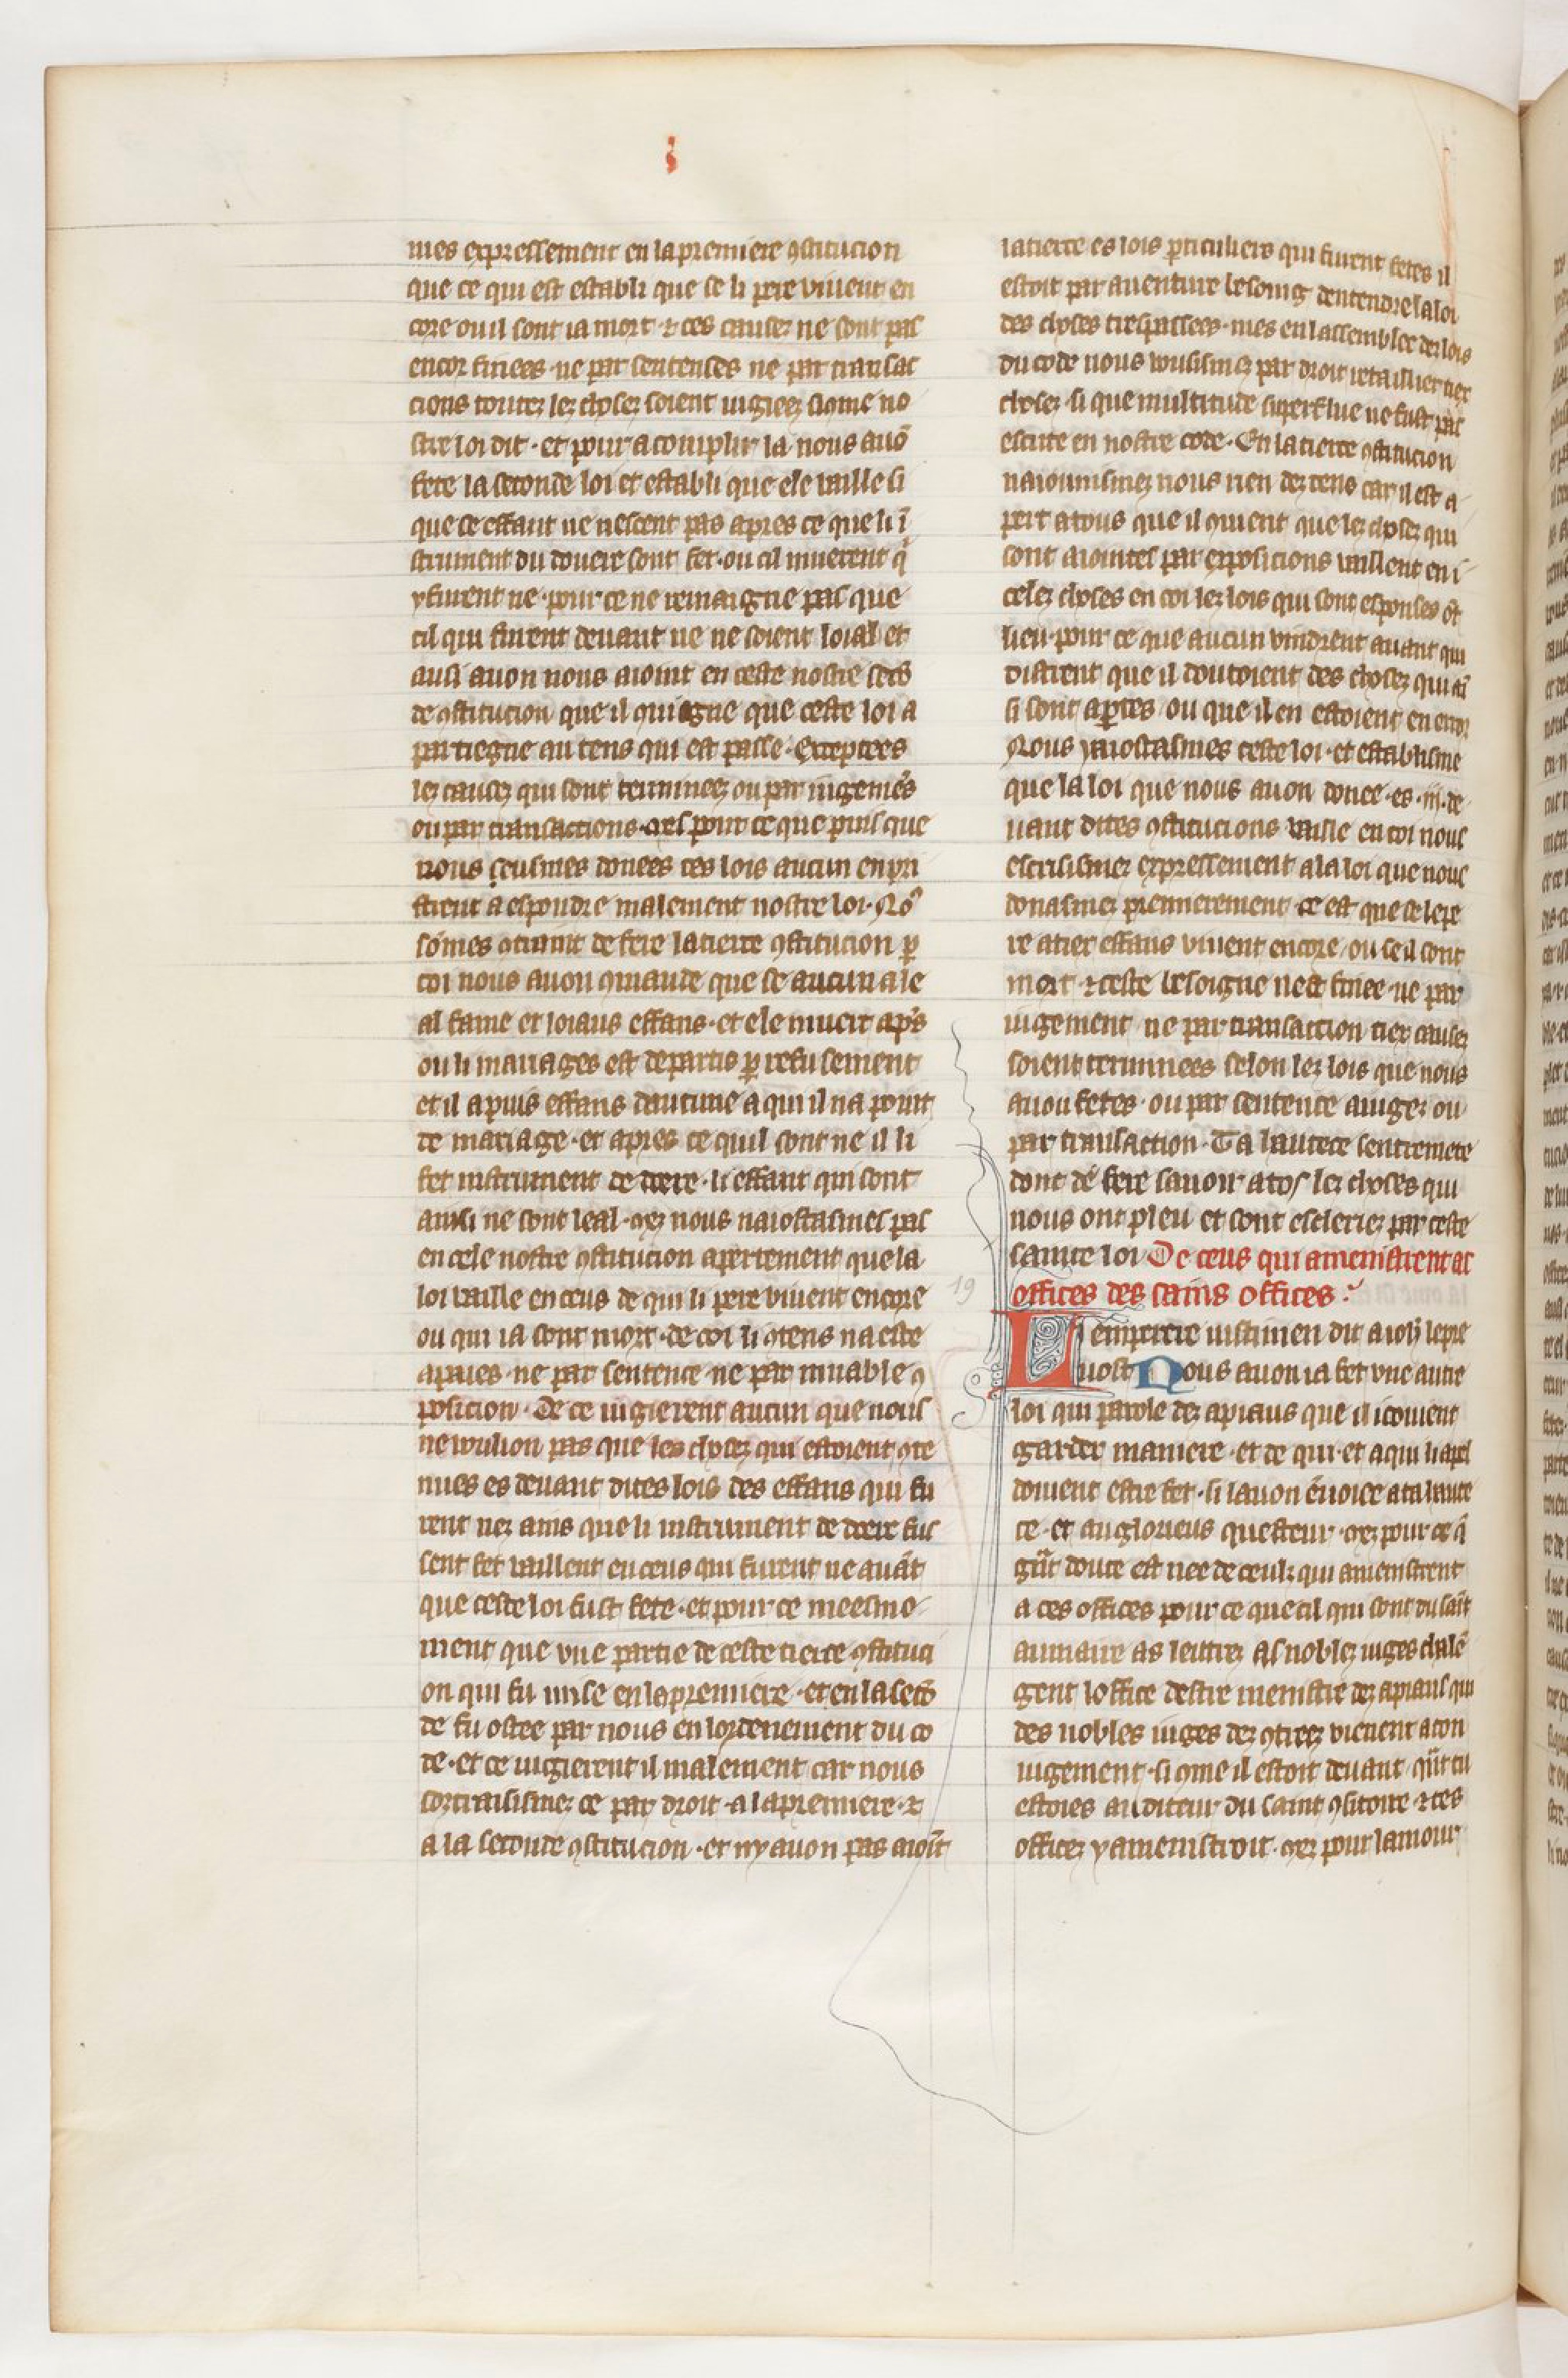 mes expressement en la premiere ꝯstitucion
que ce qui est establi que se li pere viuent en
core ou il sont ia mort ⁊ ces causez ne sont pas
encor finees ne par sentenses ne par transac
cions toutez lez chosez soient iugieez si ꝯme no
stre loi dit · et pour acomplir la nous auõ
fete la seconde loi et establi que ele vaille si
que ce effant ne nescent pas apres ce que li ĩ
strument du douere sont fet · ou cil muerent q̇
y furent ne · pour ce ne remaigne pas que
cil qui furent deuant ne ne soient loial et
ausi auon nous aioint en ceste nostre secõ
de ꝯstitucion que il ꝯuiegne que ceste loi a
partiegne au tens qui est passe · Exceptees
lez causez qui sont termineez ou par iugemẽs
ou par transactions · mes pour ce que puis que
nous eusmes donees ces lois aucun enpri
strent a espondre malement nostre loi · Noꝰ
sõmes ꝯtraint de fere la tierce ꝯstitucion ꝑ
coi nous auon ꝯmande que se aucun a le
al fame et loiaus effans · et ele muert apꝛs
ou li mariages est departis ꝑ refusement
et il a puis effans daucune a qui il na point
de mariage · et apres ce quil sont ne il li
fet instrument de doere · li effant qui sont
ainsi ne sont leal · mez nous naiostasmes pas
en cele nostre ꝯstitucion apertement que la
loi vaille en ceus de qui li pere viuent encore
ou qui ia sont mort · de coi li ꝯtens na este
apaies · ne par sentence · ne par muable ꝯ
posicion · De ce iugierent aucun que nous
ne voulion pas que les chosez qui estoient ꝯte
nues es deuant dites lois des effans qui fu
rent nez ains que li instrument de doere fus
sent fet vaillent en ceus qui furent ne auãt
que ceste loi fust fete · et pour ce meesme
ment que vne partie de ceste tierce ꝯstituci
on qui fu mise en la premiere · et en la secõ
de fu ostee par nous en lordenement du co
de · et ce iugierent il malement car nous
cortraisismez ce par droit a la premiere · ⁊
a la seconde ꝯstitucion · et ny auon pas aioĩt
la tierce es lois ꝑticuliers qui furent fetes il
estoit par auenture besoing dentendre la loi
des choses trespassees · mes en lassemblee dez lois
du code nous vousismez par droit retaillier tiex
chosez · si que multitude superflue ne fust pas
escrite en nostre code · En la tierce ꝯstitucion
naiounsimez nous rien dez tens car il est a
pert a tous que il ꝯuient que lez chosez qui
sont aiointes par expposicions vaillent en i
celez choses en coi lez lois qui sont esponses õt
lieu · pour ce que aucun vindrent auant qui
distrent que il doutoient des chosez qui aĩ
si sont aꝑtes ou que il en estoient en error
Nous y aiostasmes ceste loi · et establisme
que la loi que nous auon donee · es · iij · de
uant dites ꝯstitucions vaille en coi nous
escrisismez expressement a la loi que nous
donasmez premierement · ce est que se le pe
re a tiex effans viuent encore · ou se il sont
mort · ⁊ ceste besoigne nest finee · ne par
iugement · ne par transaction tiex causez
soient terminees selon lez lois que nous
auon fetes · ou par sentence a iugez ou
par transaction · Ta hautece sentremete
dont de fere sauoir a tos lez choses qui
nous ont pleu et sont escleriez par ceste
sainte loi · De ceus qui amenistrent as
offices des sains offices ·
19
Lemperere iustinien dit a ioh̃ le pre
uost Nous auon ia fet vne autre
loi qui parole dez apiaus que il i couient
garder maniere · et de qui · et a qui li apel
doiuent estre fet · si lauon ẽuoiee a ta haute
ce · et au glorieus questeur · mez pour ce q̃
grãt doute est nee de ceulz qui amenistrent
a ces offices pour ce que cil qui sont du saĩt
aumaire as lettrez as noblez iuges chalẽ
gent loffice destre menistre dez apiaus qui
des nobles iuges dez ꝯtreez vienent a ton
iugement · si ꝯme il estoit deuant · quãt tu
estoies auditeur du saint ꝯsitoire · ⁊ tes
officez y amenistroit · mez pour lamour